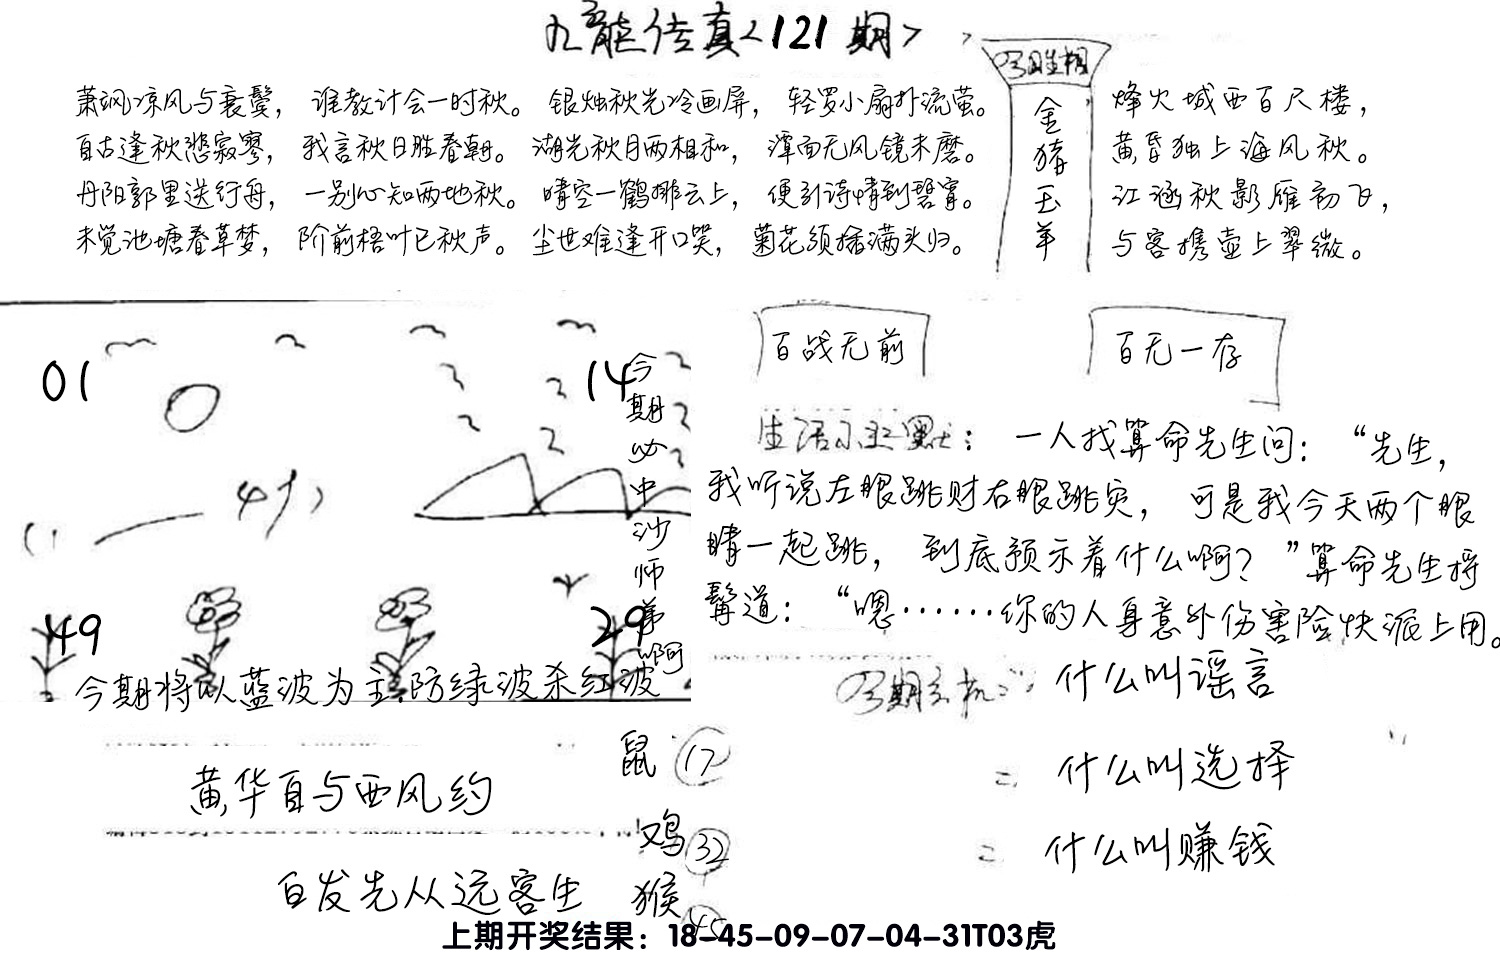 九龙传真<121期>
今期生相
金猪玉羊
萧飒凉风与衰鬓，谁教计会一时秋。银烛秋光冷画屏，轻罗小扇扑流萤。
自古逢秋悲寂寥，我言秋日胜春朝。湖光秋月两相和，潭面无风镜未磨。
丹阳郭里送行舟，一别心知两地秋。晴空一鹤排云上，便引诗情到碧霄。
未觉池塘春草梦，阶前梧叶已秋声。尘世难逢开口笑，菊花须插满头归。
烽火城西百尺楼，
黄昏独上海风秋。
江涵秋影雁初飞，
与客携壶上翠微。
01
14
49
29
今期必中沙师弟啊
今期将以蓝波为主防绿波杀红波
百战无前
百无一存
生活幽默：一人找算命先生问：“先生，
我听说左眼跳财右眼跳灾，可是我今天两个眼
睛一起跳，到底预示着什么啊？”算命先生捋
髯道：“嗯······你的人身意外伤害险快派上用。
什么叫谣言
= 什么叫选择
= 什么叫赚钱
黄华自与西风约
白发先从远客生
鼠 17
鸡 32
猴 45
上期开奖结果：18-45-09-07-04-31T03虎